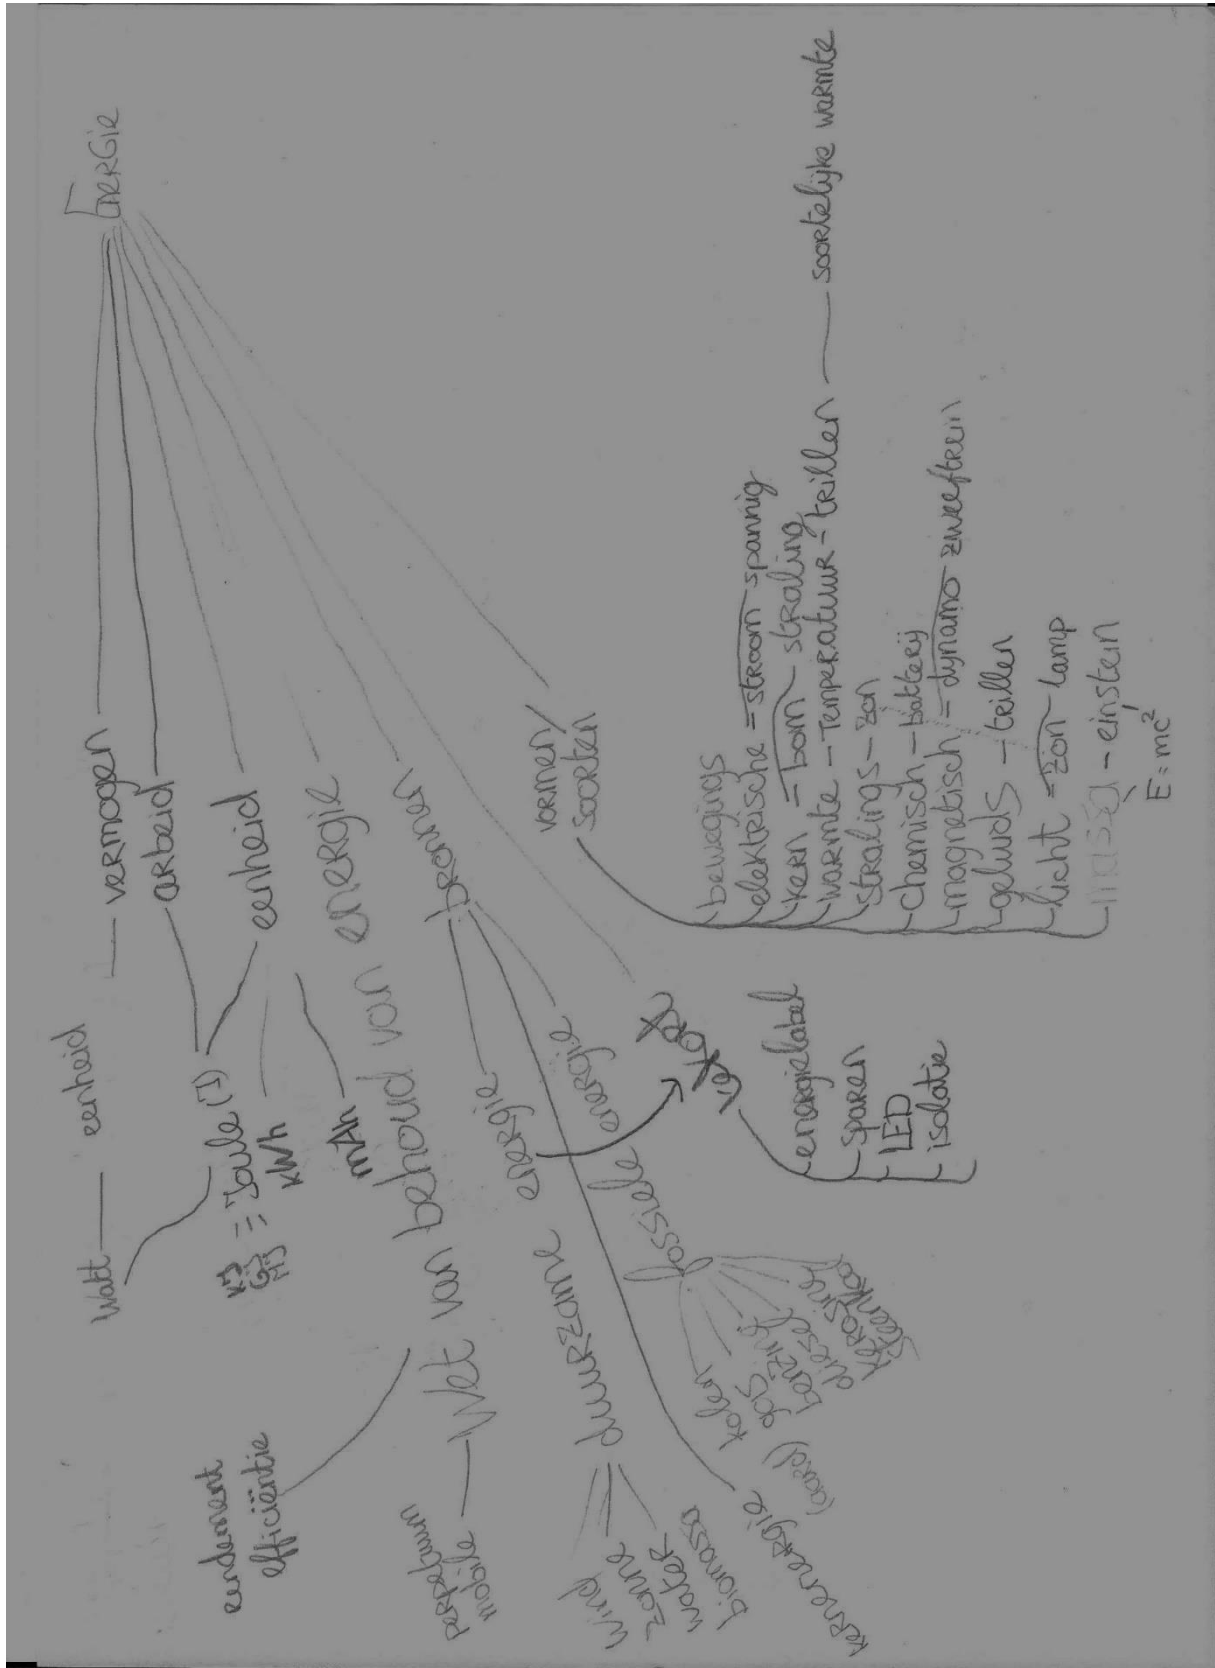 Energie
vermogen
eenheid
Watt
arbeid
eenheid
Joule (J)
kJ
GJ
MJ
kWh
mAh
Wet van behoud van energie
perpetuum
mobile
efficiëntie
bronnen
duurzame energie
wind
zonne
water
biomassa
fossiele energie
kolen
(aard) gas
benzine
diesel
kerosine
kernenergie
energielabel
sparen
LED
isolatie
vormen/
soorten
bewegings
elektrische = stroom - spannig
kern = bom - straling
warmte - Temperatuur - trillen - soortelijke warmte
stralings - zon
chemisch - batterij
magnetisch = dynamo - zweeftrein
geluids - trillen
licht = zon - lamp
massa - einstein
E=mc²